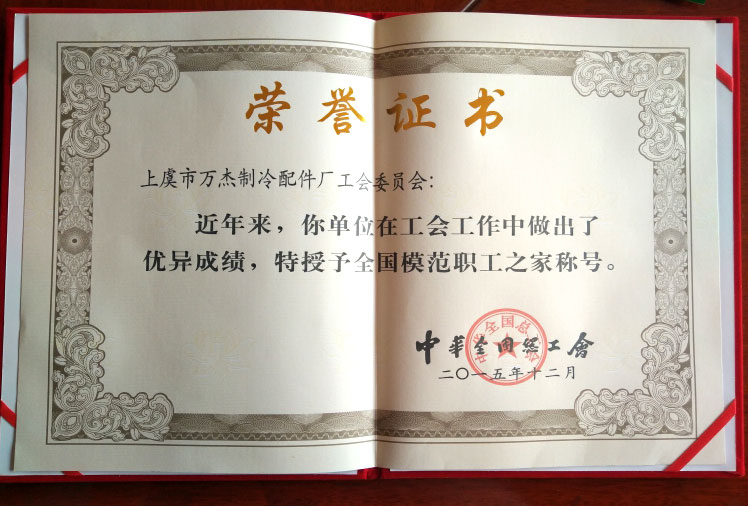 荣誉证书
上虞市万杰制冷配件厂工会委员会：
近年来，你单位在工会工作中做出了
优异成绩，特授予全国模范职工之家称号。
中华全国总工会
中華全国總工會
二〇一五年十二月